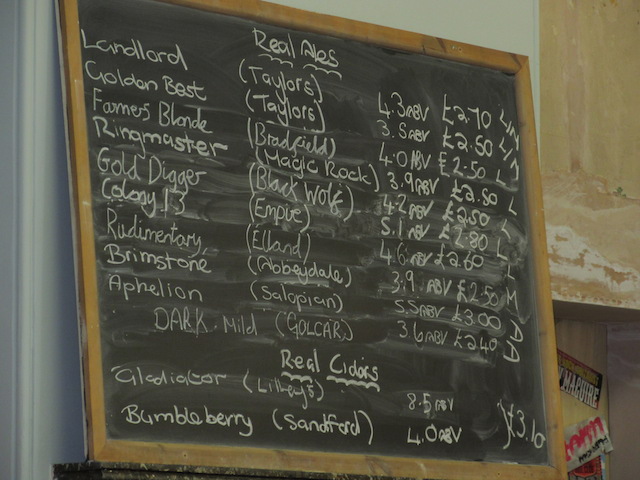 Real Ales
Landlord (Taylors) 4.3 ABV £2.70 L/N
Golden Best (Taylors) 3.5 ABV £2.50 L/N
Farmers Blonde (Bradfield) 4.0 ABV £2.50 L
Ringmaster (Magic Rock) 3.9 ABV £2.50 L
Gold Digger (Black Wolf) 4.2 ABV £2.50 L
Colony 13 (Empire) 5.1 ABV £2.80 L
Rudimentary (Elland) 4.6 ABV £2.60 L
Brimstone (Abbeydale) 3.9 ABV £2.50 M
Aphelion (Salopian) 5.5 ABV £3.00 D
DARK Mild (GOLCAR) 3.6 ABV £2.40 D
Real Ciders
Gladiator (Lilley's) 8.5 ABV
Bumbleberry (Sandford) 4.0 ABV } £3.10
MAGUIRE